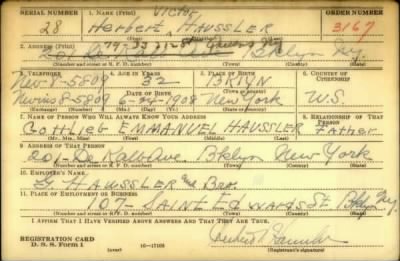 SERIAL NUMBER 1. NAME (Print) VICTOR ORDER NUMBER
28 Herbert HAUSSLER 3167
2. ADDRESS (Print)
Bklyn Ny.
(Number and street or R. F. D. number) (Town) (County) (State)
3. TELEPHONE 4. AGE IN YEARS 5. PLACE OF BIRTH 6. COUNTRY OF CITIZENSHIP
Nev-8-5809 32 BKLYN
DATE OF BIRTH
Nevins 8-5809 1908 New York U.S.
7. NAME OF PERSON WHO WILL ALWAYS KNOW YOUR ADDRESS 8. RELATIONSHIP OF THAT PERSON
GOTTLIEB EMMANUEL HAUSSLER Father
(Mr., Mrs., Miss) (First) (Middle) (Last)
9. ADDRESS OF THAT PERSON
De Kalb Ave. Bklyn New York
(Number and street or R. F. D. number) (Town) (County) (State)
10. EMPLOYER'S NAME
G. HAUSSLER and Bro.
11. PLACE OF EMPLOYMENT OR BUSINESS
107- SAINT EDWARDS ST Bklyn Ny.
(Number and street or R. F. D. number) (Town) (County) (State)
I AFFIRM THAT I HAVE VERIFIED ABOVE ANSWERS AND THAT THEY ARE TRUE.
REGISTRATION CARD
D. S. S. Form 1 (over) 16-17105